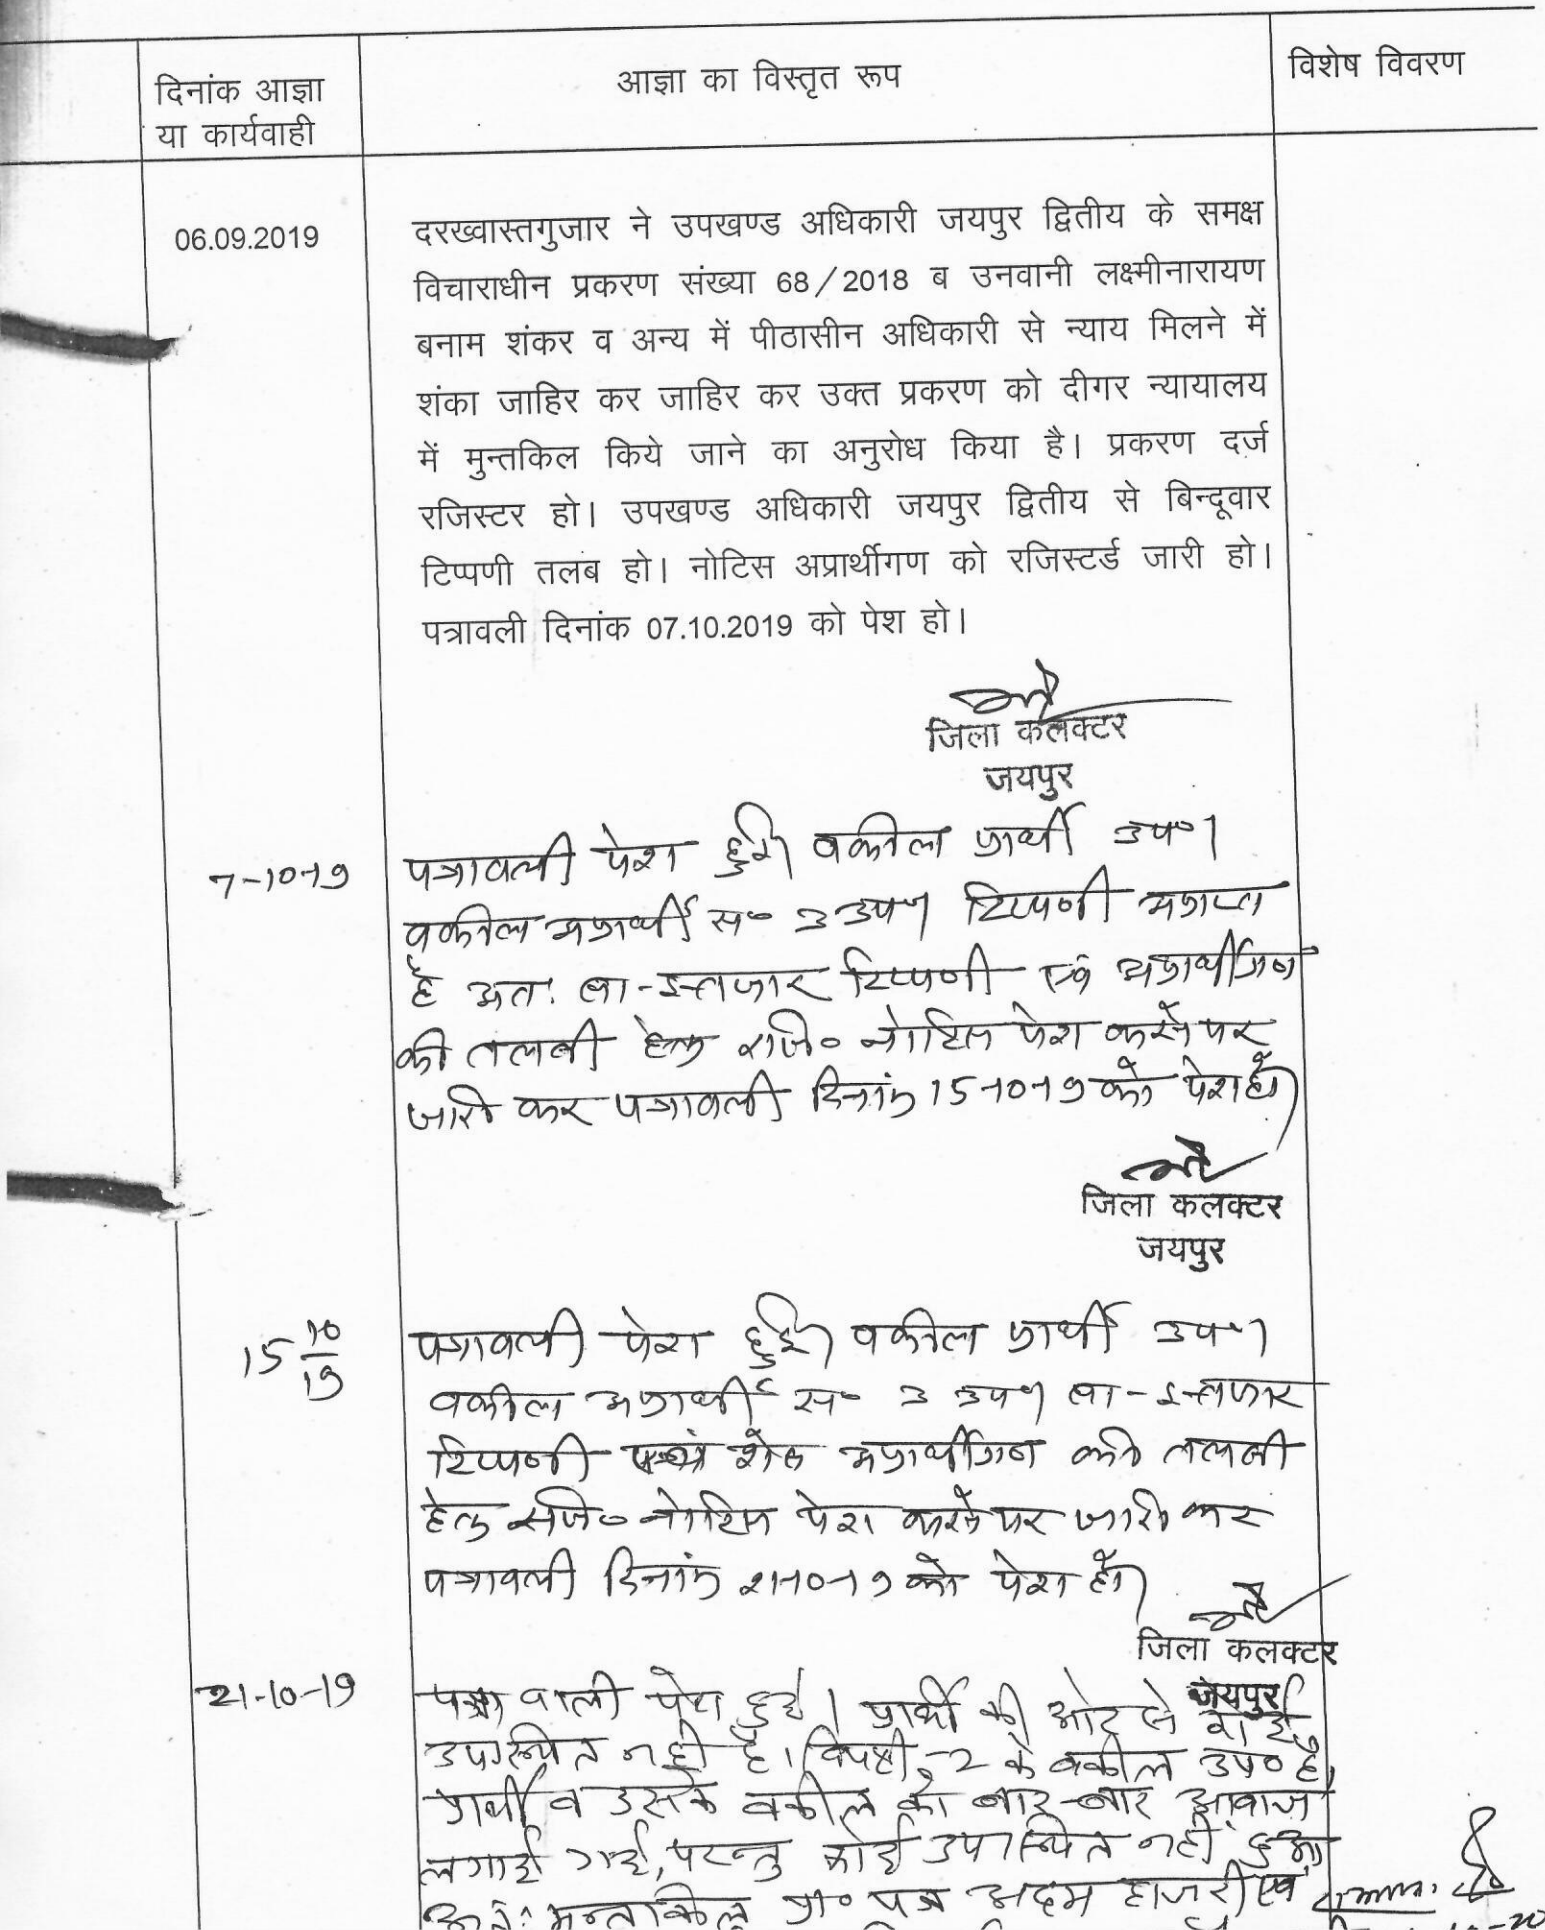 दिनांक आज्ञा
या कार्यवाही
आज्ञा का विस्तृत रूप
विशेष विवरण
06.09.2019
दरख्वास्तगुजार ने उपखण्ड अधिकारी जयपुर द्वितीय के समक्ष
विचाराधीन प्रकरण संख्या 68/2018 ब उनवानी लक्ष्मीनारायण
बनाम शंकर व अन्य में पीठासीन अधिकारी से न्याय मिलने में
शंका जाहिर कर जाहिर कर उक्त प्रकरण को दीगर न्यायालय
में मुन्तकिल किये जाने का अनुरोध किया है। प्रकरण दर्ज
रजिस्टर हो। उपखण्ड अधिकारी जयपुर द्वितीय से बिन्दूवार
टिप्पणी तलब हो। नोटिस अप्रार्थीगण को रजिस्टर्ड जारी हो।
पत्रावली दिनांक 07.10.2019 को पेश हो।
जिला कलक्टर
जयपुर
7-10-19
पत्रावली पेश हुई। वकील प्रार्थी उप०।
वकील अप्रार्थी स० 3 उप०। टिप्पणी अप्राप्त
है अत: बा-इन्तजार टिप्पणी एवं अप्रार्थीगण
की तलबी हेतु रजि० नोटिस पेश करने पर
जारी कर पत्रावली दिनांक 15-10-19 को पेश हो।
जिला कलक्टर
जयपुर
15 10/19
पत्रावली पेश हुई। वकील प्रार्थी उप०।
वकील अप्रार्थी स० 3 उप०। बा-इन्तजार
टिप्पणी एवं शेष अप्रार्थीगण की तलबी
हेतु रजि० नोटिस पेश करने पर जारी कर
पत्रावली दिनांक 21-10-19 को पेश हो।
जिला कलक्टर
जयपुर
21-10-19
पत्रावली पेश हुई। प्रार्थी की ओर से कोई
उपस्थित नही है। विपक्षी-2 के वकील उप० है,
प्रार्थी व उसके वकील को बार-बार आवाज
लगाई गई, परन्तु कोई उपस्थित नही हुआ
अत: मुन्तकिल प्रा० पत्र अदम हाजरी एवं